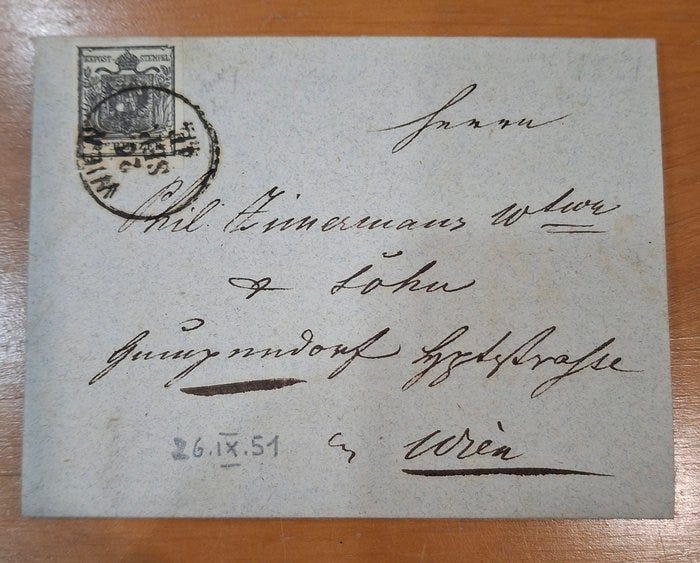 K.K.POST-STEMPEL
WIEN
26
SEP
Herrn
Phil. Zimermanns Wtwe
& Söhne
Gumpendorf Hptstrasse
in Wien
26.IX.51